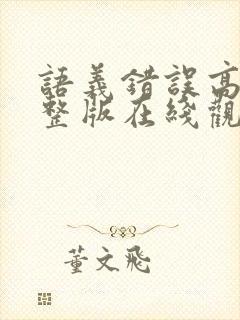 語義錯誤高
整版在綫觀
董文飛